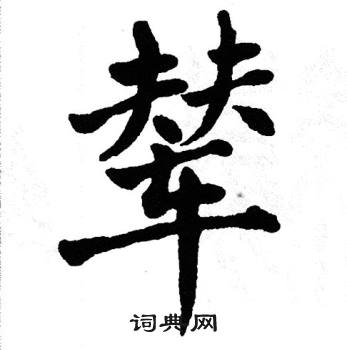 辇
词典网